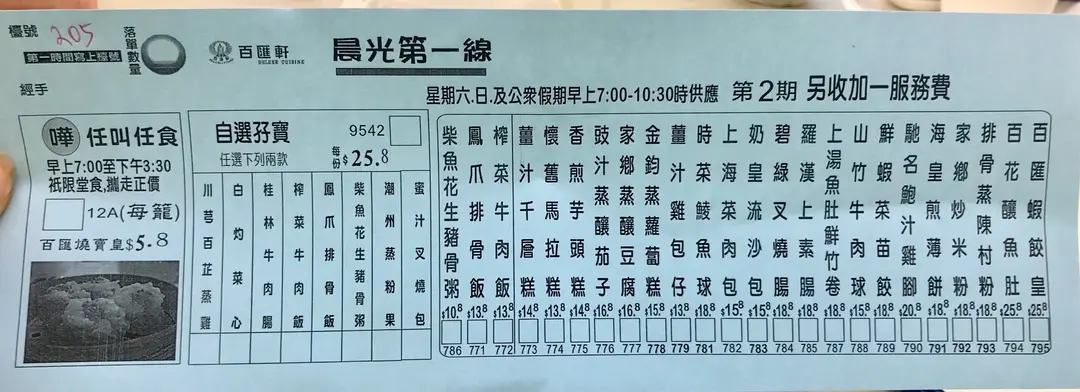 檯號 205
第一時間寫上檯號
落單數量
經手
百匯軒
晨光第一線
星期六.日.及公衆假期早上7:00-10:30時供應 第2期 另收加一服務費
嘩 任叫任食
早上7:00至下午3:30
祇限堂食,攜走正價
12A(每籠)
百匯燒賣皇$5.8
自選孖寶 9542
任選下列兩款 每份$25.8
川芎百芷蒸雞
白灼菜心
桂林牛肉腸
榨菜牛肉飯
鳳爪排骨飯
柴魚花生豬骨粥
潮州蒸粉果
蜜汁叉燒包
柴魚花生豬骨粥
鳳爪排骨飯
榨菜牛肉飯
薑汁千層糕
懷舊馬拉糕
香煎芋頭糕
豉汁蒸釀茄子
家鄉蒸釀豆腐
金鈎蒸蘿蔔糕
薑汁雞包仔
時菜鯪魚球
上海菜肉包
奶皇流沙包
碧綠叉燒腸
羅漢上素腸
上湯魚肚鮮竹卷
山竹牛肉球
鮮蝦菜苗餃
馳名鮑汁雞腳
海皇煎薄餅
家鄉炒米粉
排骨蒸陳村粉
百花釀魚肚
百匯蝦餃皇
$10.8 $13.8 $13.8 $14.8 $13.8 $14.8 $16.8 $16.8 $15.8 $13.8 $18.8 $15.8 $15.8 $18.8 $18.8 $18.8 $18.8 $18.8 $20.8 $18.8 $18.8 $18.8 $25.8 $25.8
786 771 772 773 774 775 776 777 778 779 781 782 783 784 785 787 788 789 790 791 792 793 794 795